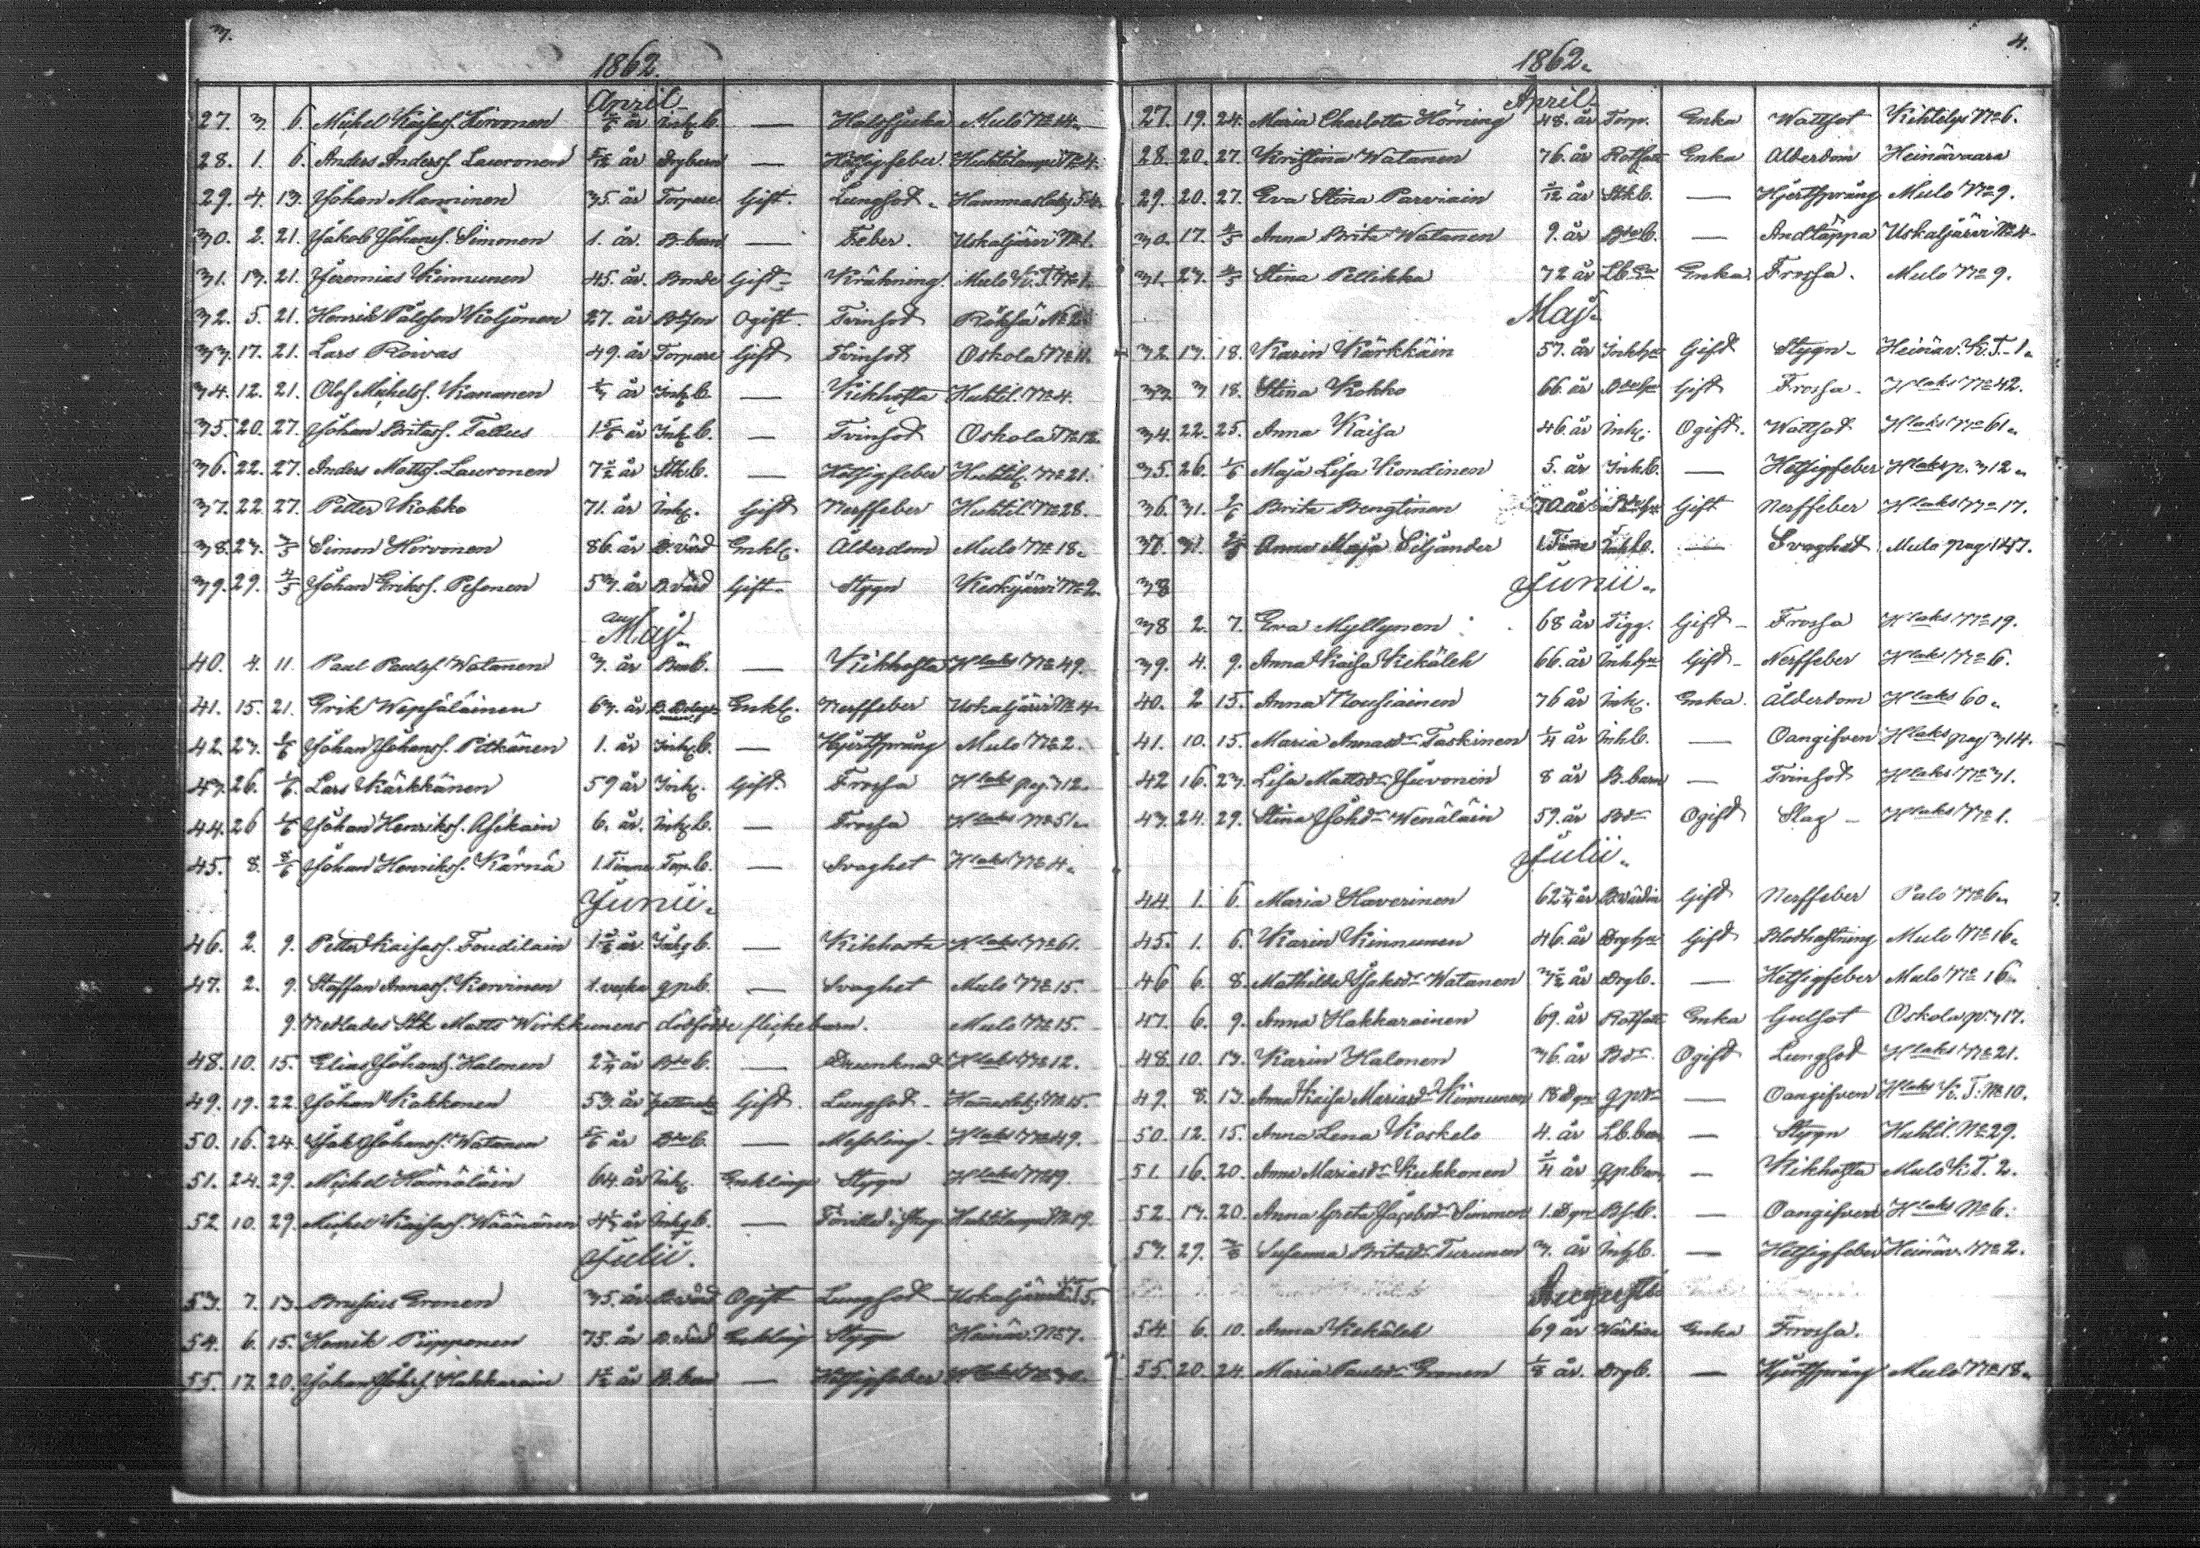 3.
1862.
April
27. 3. 6. Michel Kaisas. Hirvonen år Inh. b. — Halssjuka Mulo No 14.
28. 1. 6. Anders Anderss. Lauronen 5/12 år Drgbarn — Hetsigfeber. Huhtilampi No 4.
29. 4. 13. Johan Manninen 35 år Torpare Gift. Lungsot. Hammaslaks
30. 2. 21. Jakob Johanss. Simonen 1. år. B-barn — Feber. Uskaljärvi No 1.
31. 13. 21. Jeremias Kinnunen 45. år. Bonde Gift Kräkning. Mulo K. T. No 1.
32. 5. 21. Henrik Pålsson Koljonen 27. år Bdson Ogift. Tvinsot Röksä No 2.
33. 17. 21. Lars Roivas 49. år Torpare Gift Tvinsot Oskola No 11.
34. 12. 21. Olof Michelss. Kananen år Inh. b. — Kikhosta Huhtil. No 4.
35. 20. 27. Johan Britas. Tallus 1 5/6 år Inh. b. — Tvinsot Oskola No 12.
36. 22. 27. Anders Matts. Lauronen 7 1/2 år Sthb. — Hetsigfeber Huhtil. No 21.
37. 22. 27. Petter Kokko 71. år Inh. Gift Nerffeber Huhtil. No 28.
38. 27. 4/5 Simon Hirvonen 86. år B. värd Enkl. Alderdom Mulo No 18.
39. 29. 4/5 Johan Erikss. Pesonen 53. år B. värd Gift Stygn Keskijärvi No 2.
Maj.
40. 4. 11. Paul Paulss. Watanen 3. år Bdeb. — Kikhosta Hlaks No 49.
41. 15. 21. Erik Wepsäläinen 63. år B. Enkl. Nerffeber Uskaljärvi No 4.
42. 23. 1/6 Johan Johans. Pitkänen 1. år Inh. b. — Hjertsprång Mulo No 2.
43. 26. 1/6. Lars Kärkkänen 59 år Inh. Gift. Frossa Hlaks pag. 312.
44. 26 1/6 Johan Henrikss. Asikain 6. år. Inh. b. — Frossa Hlaks No 51.
45. 8. 8/6 Johan Henrikss. Kärnä 1. Timme Torp. b. — Svaghet Hlaks No 4.
Junii.
46. 2. 9. Petter Kaisas. Toudilain 1 år Inh. b. — Kikhosta Hlaks No 61.
47. 2. 9. Staffan Annas. Korvinen 1. vecka gpb. — Svaghet Mulo No 15.
9. Nedlades Sth Matts Wirkkunens dödfödde flickebarn. Mulo No 15.
48. 10. 15. Elias Johans. Halonen 2 år Bdeb. — Drunknad Hlaks No 12.
49. 19. 22. Johan Kokkonen 53. år Gift. Lungsot Hammaslaks No 15.
50. 16. 24. Jak. Johanss. Watanen 5/6 år Bdeb. — Messling. Hlaks No 49.
51. 24. 29. Michel Hämäläin 64. år Inh. Enkling Stygn Hlaks No 19.
52 10. 29. Michel Kaisas. Wäänänen 4 år Inh. b. — Förvillad i skog Huhtilampi No 19.
Julii.
53. 7. 13. Brusius Eronen 35. år B. värd Ogift Lungsot Uskaljärvi K. T. 5.
54. 6. 15. Henrik Piipponen 75. år B. värd Enkling Stygn Heinäv. No 7.
55. 17. 20. Johan Johss. Hakkarain 1 1/2 år B. barn — Hetsigfeber Hlaks No 30.
4.
1862.
April
27. 19. 24. Maria Charlotta Hörning 48. år Torp. Enka Wattsot Kihtelys No 6.
28. 20. 27. Kristina Watanen 76. år Rothatt Enka Alderdom Heinävaara
29. 20. 27. Eva Stina Parviain /12 år Sthb. — Hjertsprång Mulo No 9.
30. 17. 4/5 Anna Brita Watanen 9. år Bdeb. — Andtäppa Uskaljärvi No 4
31. 27. 4/5 Stina Pellikka 72 år Lb. Enka Frossa. Mulo No 9.
Maj.
32 13. 18. Karin Kärkkäin 57. år Inhhu Gift Stygn Heinäv. K. T. 1.
33 3 18. Stina Kokko 66. år Bdehu Gift Frossa Hlaks No 42.
34. 22. 25. Anna Kaisa 46. år Inh. Ogift. Wattsot Hlaks No 61.
35. 26. 1/6 Maja Lisa Kondinen 5. år Inhb. — Hetsigfeber Hlaks p. 312.
36. 31. 2/6 Brita Bengtinen 70 år Bdehu Gift Nerffeber Hlaks No 17.
37. 31. Anna Maja Siljander 1 Timme Inhb. — Svaghet Mulo pag 147.
38 Junii.
38 2. 7. Eva Myllynen 68 år Tigg. Gift Frossa Hlaks No 19.
39. 4. 9. Anna Kaisa Kekäleh 66. år Inhhu Gift Nerffeber Hlaks No 6.
40. 2 15. Anna Nousiainen 76 år Inh. Enka. Ålderdom Hlaks 60.
41. 10. 15. Maria Annasdr Taskinen 1/4 år Inhb. — Oangifven Hlaks pag 314.
42 16. 23. Lisa Mattsdr Juvonen 8 år B. barn — Tvinsot Hlaks No 31.
43. 24. 29. Stina Johdr Wenäläin 59. år Bdr Ogift Slag Hlaks No 1.
Julii.
44. 1. 6. Maria Haverinen 62 år B. värdin Gift Nerffeber Palo No 6.
45. 1. 6. Karin Kinnunen 46. år Drghu Gift Blodhostning Mulo No 16.
46 6. 8. Mathilda Isaksdr Watanen 3 1/2 år Drgb. — Hetsigfeber Mulo No 16.
47. 6. 9. Anna Hakkarainen 69. år Rothatt Enka Gulsot Oskola p. 317.
48. 10. 13. Karin Halonen 36. år Bdr. Ogift Lungsot Hlaks No 21.
49. 8. 13. Anna Kaisa Mariasdr Kinnunen 18 dgr gpdr — Oangifven Hlaks K. T. No 10.
50. 12. 15. Anna Lena Koskelo 4. år Lb. barn — Stygn Huhtil. No 29.
51. 16. 20. Anna Mariasdr Kuhkonen 3/4 år gp. barn — Kikhosta Mulo K. T. 2.
52. 17. 20. Anna Greta Jacobsdr Simonen 1. dgn Bsb. — Oangifven Hlaks No 6.
53. 29. Susanna Britasdr Turunen 3. år Inhb. — Hetsigfeber Heinäv. No 2.
Augusti
54. 6. 10. Anna Kekäleh 69 år Wärdin Enka Frossa.
55. 20. 24. Maria Paulsdr Eronen 1/8 år. Drgb. — Hjertsprång Mulo No 18.